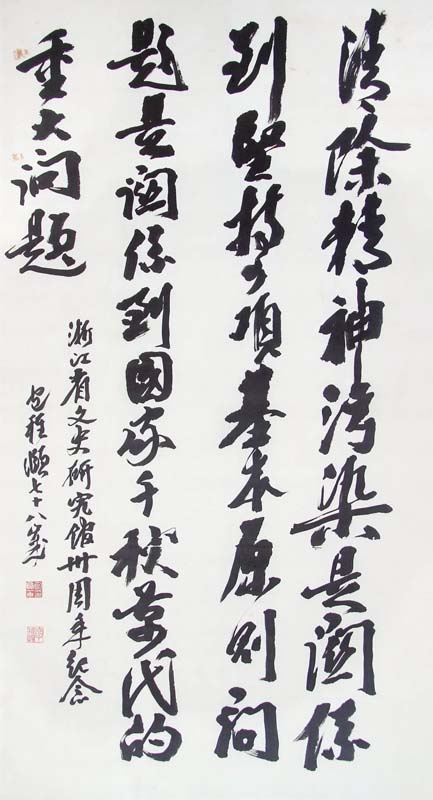 清除精神污染是關係
到堅持四項基本原則問
題是關係到國家千秋萬代的
重大問題
浙江省文史研究館卅周年紀念
包稚頤七十八歲